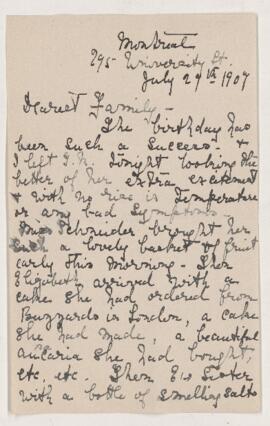 Montreal
295 University St.
July 27th 1907
Dearest Family -
The birthday has
been such a success. &
I left tonight looking the
better of her extra excitement
& with no rise in temperature
or any bad symptoms.
Miss Schneider brought her
such a lovely basket of fruit
early this morning. Then
Elizabeth arrived with a
cake she had ordered from
Buzzards in London, a cake
she had made, a beautiful
she had bought,
etc. etc. Then Sister
with a bottle of smelling salts